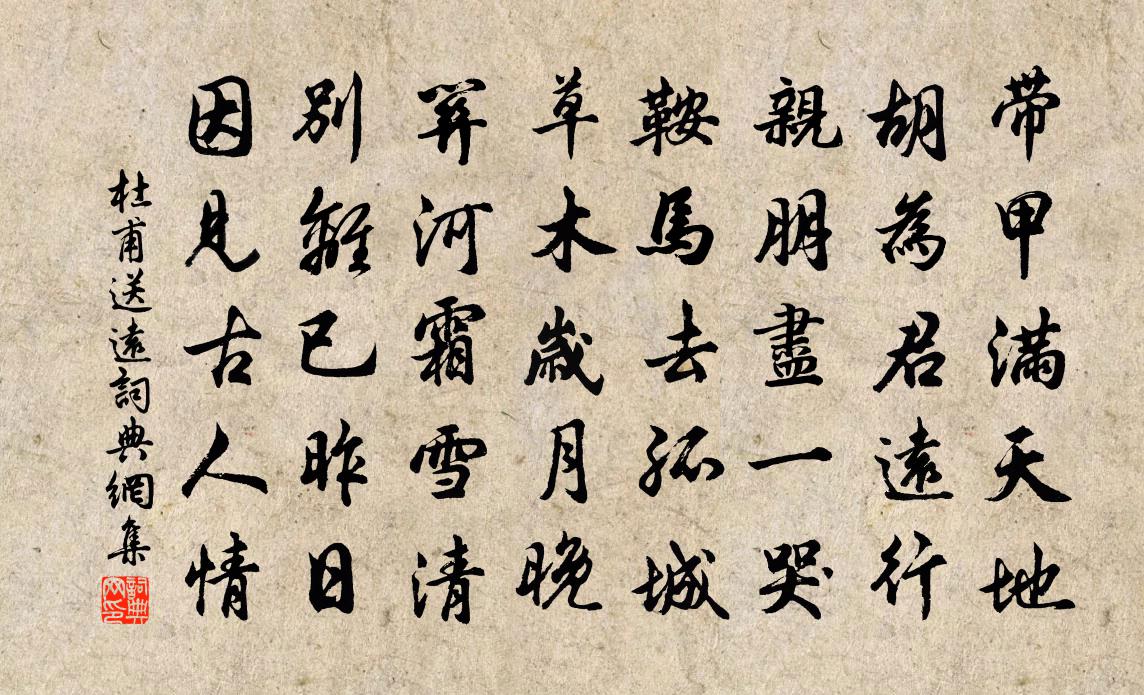 帶甲滿天地
胡為君遠行
親朋盡一哭
鞍馬去孤城
草木歲月晚
關河霜雪清
別離已昨日
因見古人情
杜甫送遠詞典網集
詞典網印